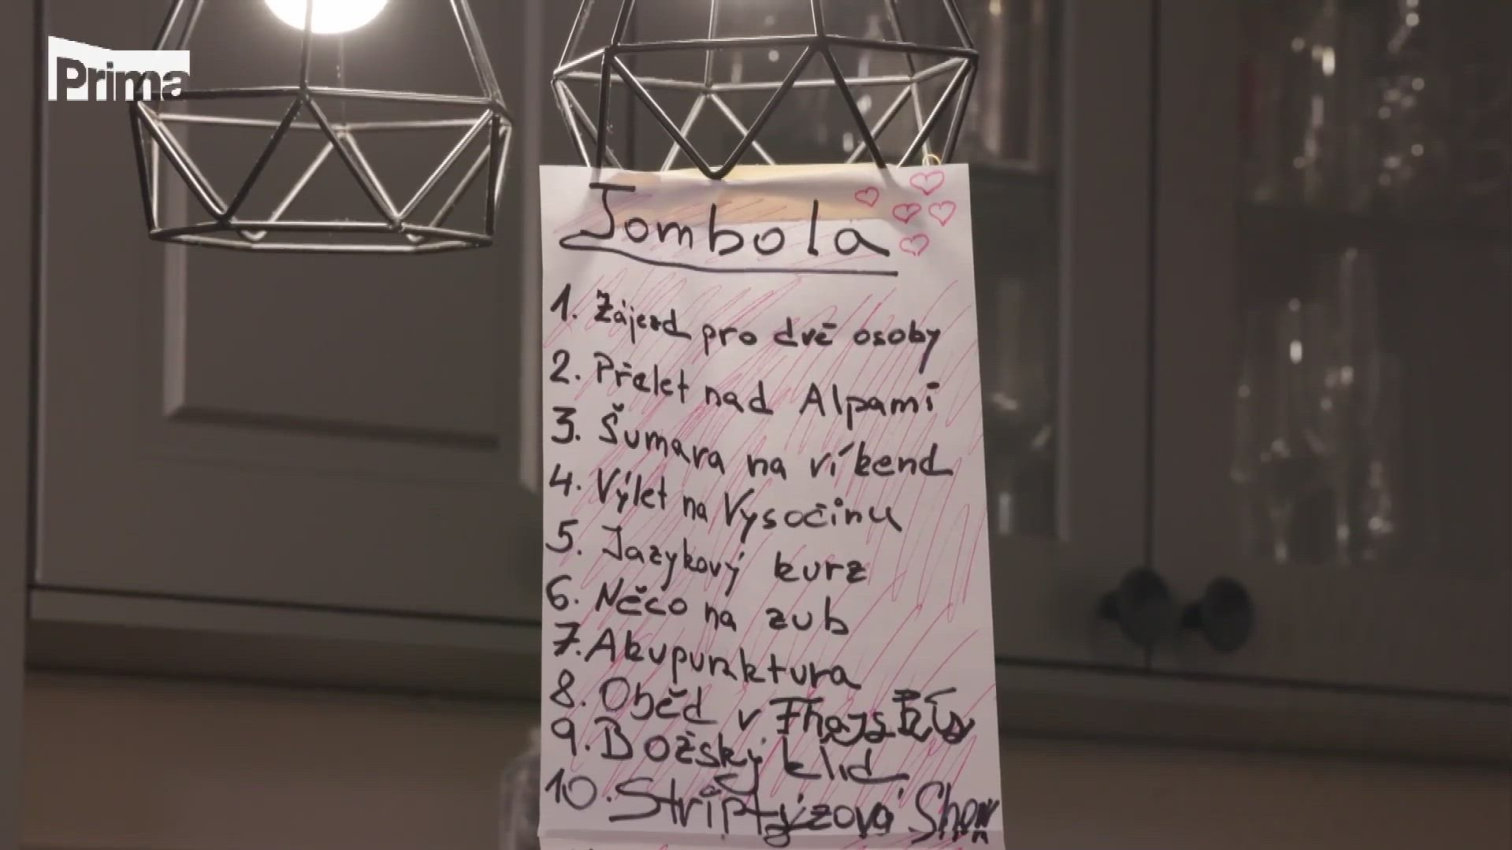 Prima
Tombola
1. Zájezd pro dvě osoby
2. Přelet nad Alpami
3. Šumava na víkend
4. Výlet na Vysočinu
5. Jazykový kurz
6. Něco na zub
7. Akupunktura
8. Oběd v
9. Božský klid
10. Striptýzová Show